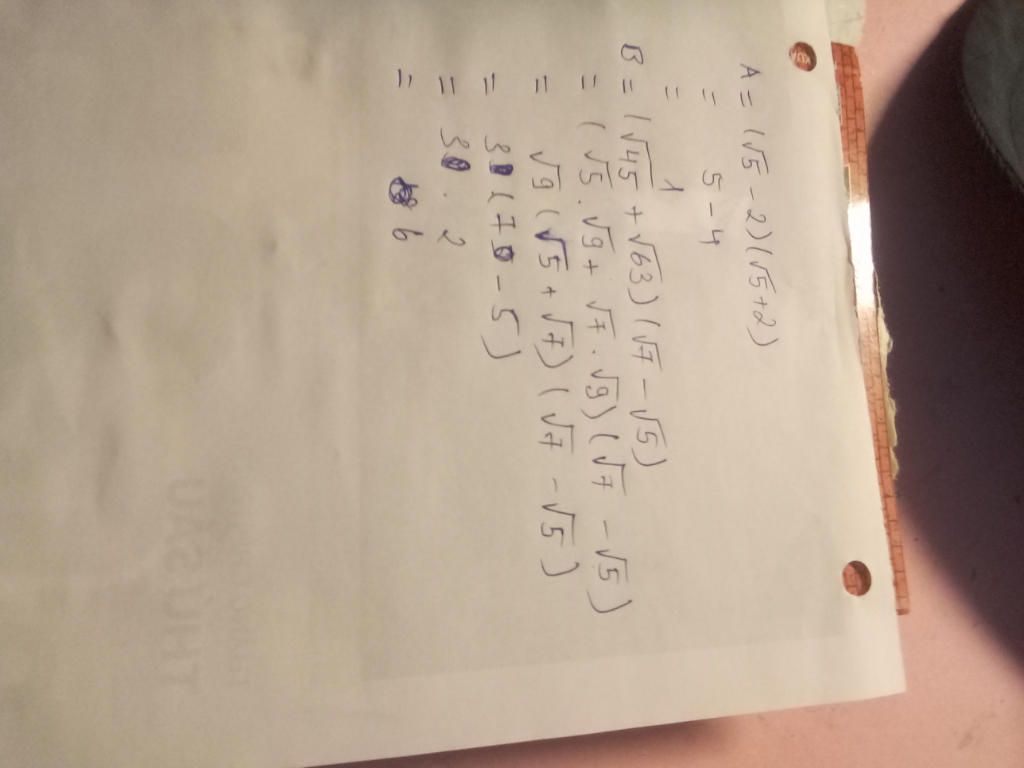 A = (√5 - 2)(√5+2)
= 5 - 4
= 1
B = (√45 + √63)(√7 - √5)
= (√5 . √9 + √7 . √9)(√7 - √5)
= √9 (√5 + √7)(√7 - √5)
= 3 (7 - 5)
= 3 . 2
= 6